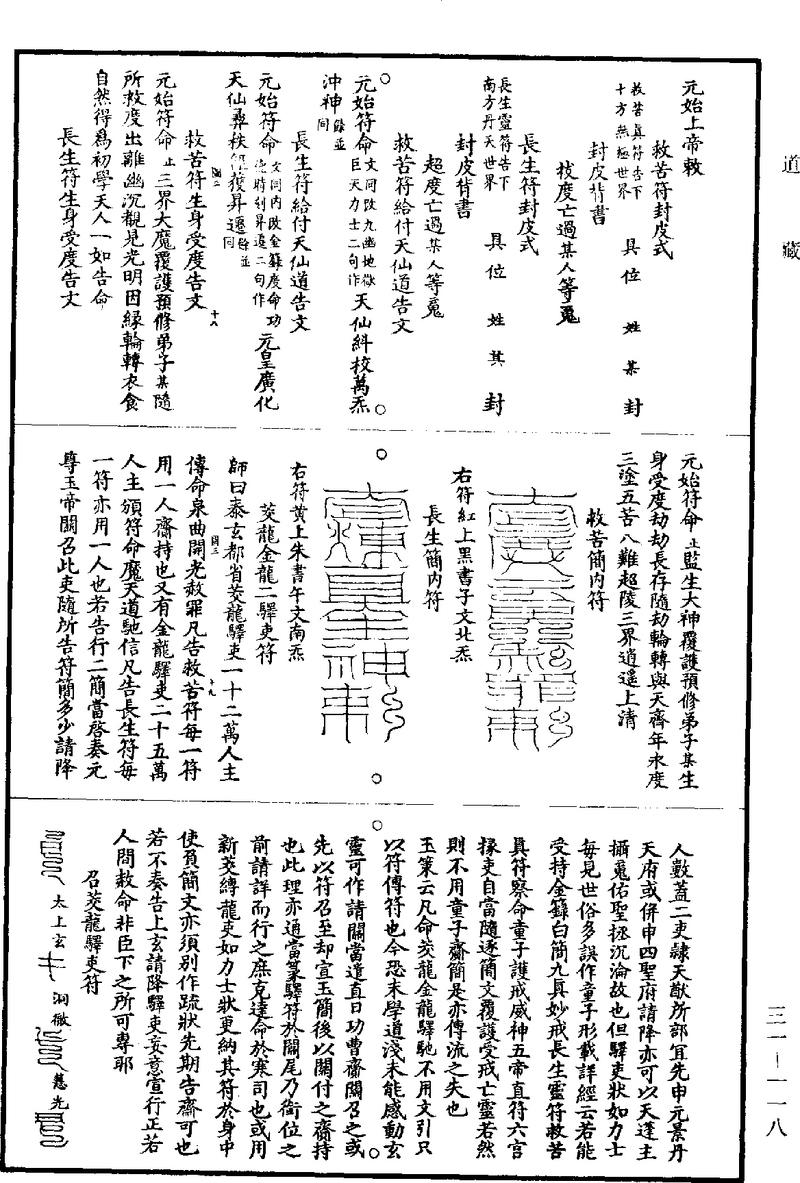 道藏
元始上帝敕
救苦符封皮式
救苦真符告下十方無極世界 具位 姓某 封
封皮背書
拔度亡過某人等魂
長生符封皮式
長生靈符告下南方丹天世界 具位 姓某 封
封皮背書
超度亡過某人等魂
救苦符給付天仙道告文
元始符命文同改九幽地獄巨天力士二句作天仙糾校萬炁
沖神餘並同
長生符給付天仙道告文
元始符命文同内改金籙度命功德時刻昇遷二句作元皇廣化
天仙彝秩復獲昇遷餘並同
救苦符生身受度告文
十八
元始符命止三界大魔覆護預修弟子某隨
所救度出離幽沉覩見光明因緣輪轉衣食
自然得爲初學天人一如告命
長生符生身受度告文
元始符命止監生大神覆護預修弟子某生
身受度劫劫長存隨劫輪轉與天齊年永度
三塗五苦八難超陵三界逍遥上清
救苦簡内符
右符紅上黑書子文北炁
長生簡内符
右符黄上朱書午文南炁
茭龍金龍二驛吏符
師曰泰玄都省茭龍驛吏一十二萬人主
傳命泉曲開光赦罪凡告救苦符每一符
十九
用一人齋持也又有金龍驛吏二十五萬
人主頒符命魔天道馳信凡告長生符每
一符亦用一人也若告行二簡當啓奏元
尊玉帝關召此吏隨所告符簡多少請降
人數蓋二吏隸天猷所部宜先申元景丹
天府或併申四聖府請降亦可以天蓬主
攝魂佑聖拯沉淪故也但驛吏狀如力士
每見世俗多誤作童子形載詳經云若能
受持金籙白簡九真妙戒長生靈符救苦
真符察命童子護戒威神五帝直符六宫
掾吏自當隨逐簡文覆護受戒亡靈若然
則不用童子齋簡是亦傳流之失也
玉策云凡命茭龍金龍驛馳不用文引只
以符傳符也今恐末學道淺未能感動玄
靈可作請關當遣直日功曹齋關召之或
先以符召至却宣玉簡後以關付之齋持
也此理亦通當篆驛符於關尾乃銜位之
前請詳而行之庶克達命於寒司也或用
新茭縛龍吏如力士狀更納其符於身中
使負簡文亦須别作疏狀先期告齋可也
若不奏告上玄請降驛吏妄意宣行正若
人間赦命非臣下之所可專耶
召茭龍驛吏符
太上玄 洞微 慈光
三一—一一八